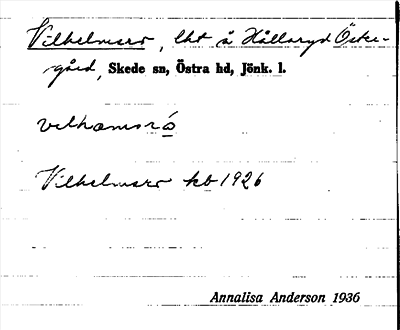 Vilhelmsro, lht å Hållaryd Öster-
gård, Skede sn, Östra hd, Jönk. l.
velhamsró
Vilhelmsro kb 1926
Annalisa Anderson 1936